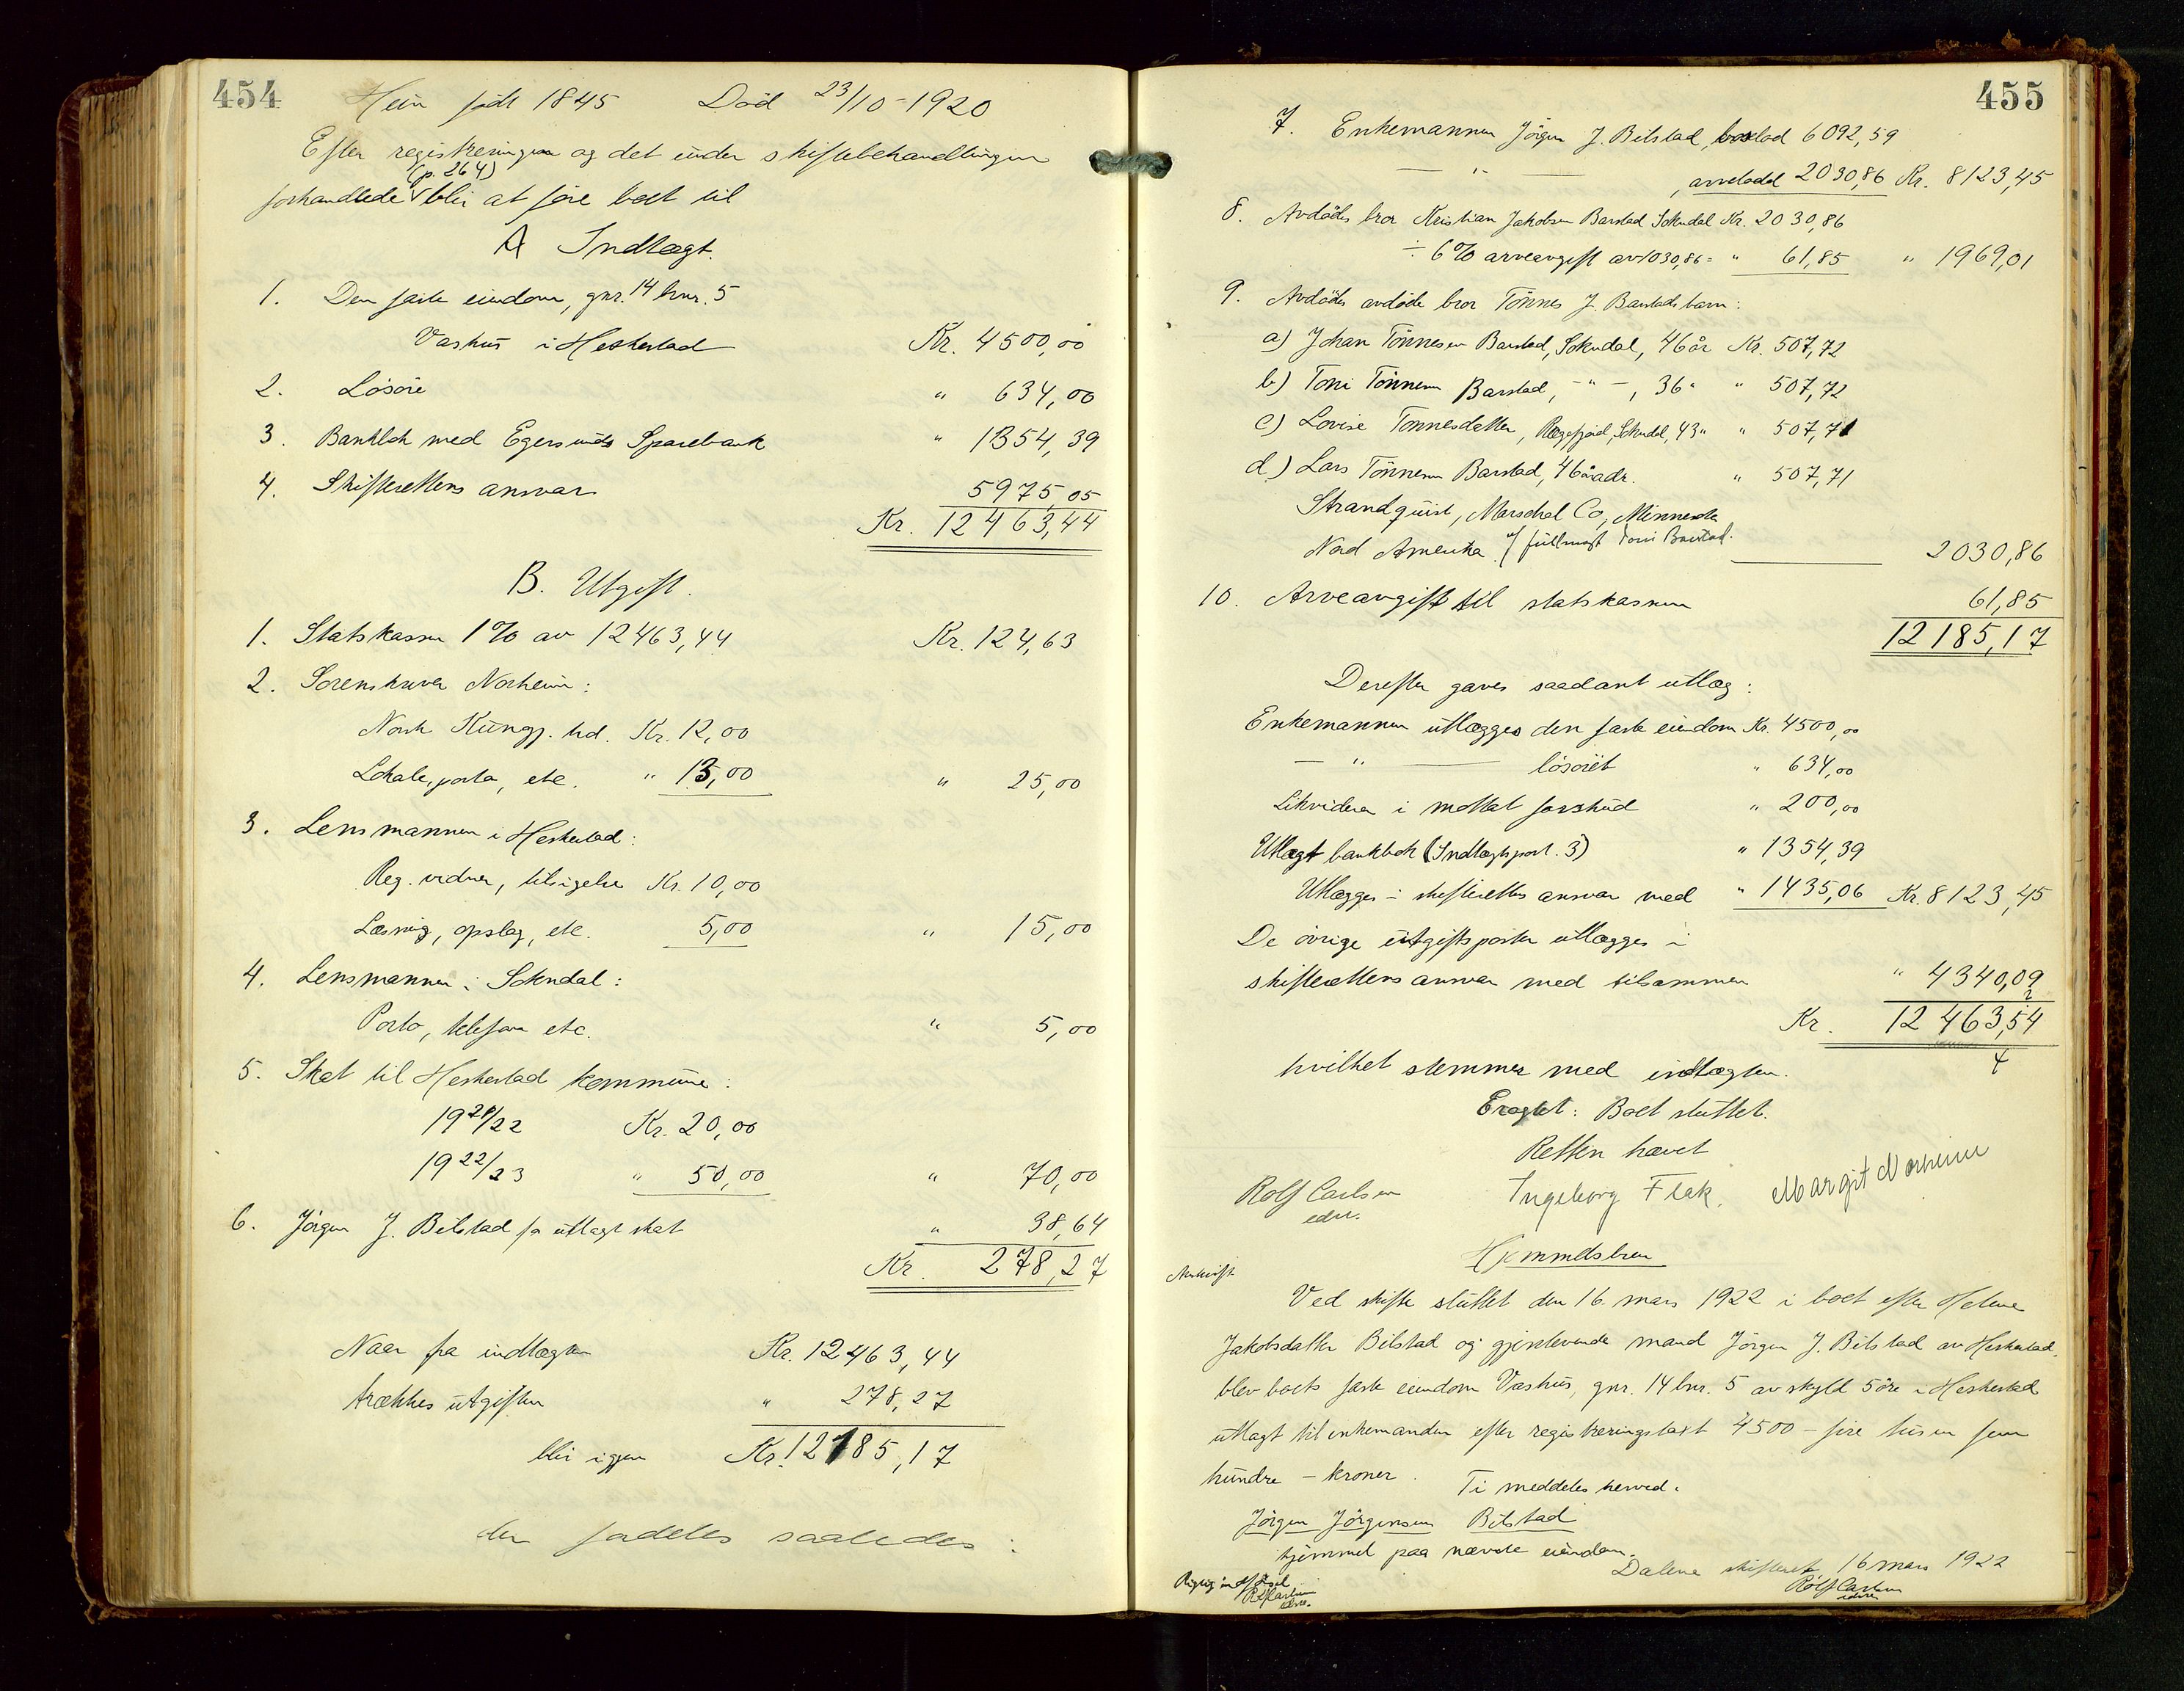 454
Hun født 1845 Død 23/10-1920
Efter registreringen og det under skiftebehandlingen
(p. 264)
forhandlede blir at føre boet til
A Indtægt.
1. Den faste eiendom, gnr. 14 bnr. 5
Vashus i Heskestad Kr. 4500,00
2. Løsøre " 634,00
3. Bankbok med Egersunds Sparebank " 1354,39
4. Skifterettens ansvar 5975,05
Kr. 12463,44
B. Utgift.
1. Statskassen 1% av 12463,44 Kr. 124,63
2. Sorenskriver Norheim:
Norsk Kungj. tid. Kr. 12,00
Lokale, porto, etc. " 13,00 " 25,00
3. Lensmannen i Heskestad:
Reg. vidner, tilsigelse Kr. 10,00
Læsning, opslag, etc. 5,00 " 15,00
4. Lensmannen i Sokndal:
Porto, telefon etc. " 5,00
5. Skat til Heskestad kommune:
1921/22 Kr. 20,00
1922/23 " 50,00 " 70,00
6. Jörgen J. Bilstad for utlagt skat " 38,64
Kr. 278,27
Naar fra indtægten Kr. 12463,44
trækkes utgiften " 278,27
blir igjen Kr. 12185,17
der fordeles saaledes:
455
7. Enkemannen Jörgen J. Bilstad, boslod 6092,59
— " — , arvelodd 2030,86 Kr. 8123,45
8. Avdødes bror Kristian Jakobsen Barstad Sokndal Kr. 2030,86
÷ 6% arveavgift av 1030,86 = " 61,85 " 1969,01
9. Avdødes avdøde bror Tönnes J. Barstads barn:
a) Johan Tönnesen Barstad, Sokndal, 46 år Kr. 507,72
b) Toni Tönnesen Barstad, - " - , 36 " " 507,72
c) Lovise Tonnesdatter, Rægefjord, Sokndal, 43 " " 507,71
d) Lars Tönnesen Barstad, 46 år adr. " 507,71
Strandquist, Marschal Co, Minnesota
Nord Amerika. e/ fullmagt Toni Barstad. 2030,86
10. Arveavgift til statskassen 61,85
12185,17
Derefter gaves saadant utlæg:
Enkemannen utlægges den faste eiendom Kr. 4500,00
— " — løsøret " 634,00
Likviderer i mottat forskud " 200,00
Utlagt bankbok (Indtægtspost. 3) " 1354,39
Utlægges i skifterettens ansvar med " 1435,06 Kr. 8123,45
De övrige utgiftsposter utlægges i
skifterettens ansvar med tilsammen " 4340,09
2
Kr. 12463,54
4
hvilket stemmer med indtægten.
Eragtet: Boet sluttet.
Retten hævet
Rolf Carlsen Ingeborg Flak. Margit Norheim
edsv.
Hjemmelsbrev
Avskrift
Ved skifte sluttet den 16. mars 1922 i boet efter Helene
Jakobsdatter Bilstad og gjenlevende mand Jörgen J. Bilstad av Heskestad.
blev boets faste eiendom Vashus, gnr. 14 bnr. 5 av skyld 5 øre i Heskestad
utlagt til enkemanden efter registreringstaxt 4500 - fire tusen fem
hundre - kroner. Ti meddeles herved.
Jörgen Jörgensen Bilstad
hjemmel paa nævnte eiendom.
Dalene skifteret, 16 mars 1922
Rolf Carlsen
edsv.
Rigtig indført
Rolf Carlsen
edsv.